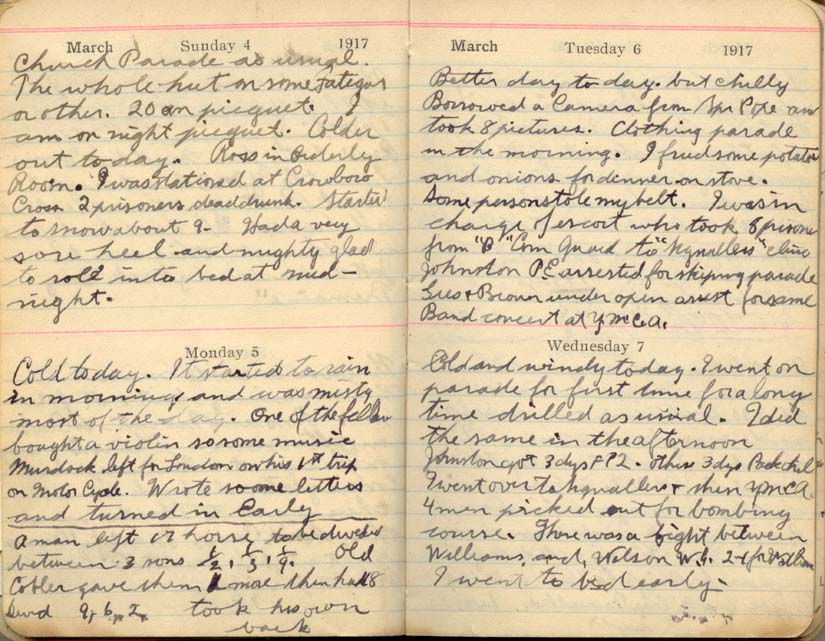 March Sunday 4 1917
Church Parade as usual.
The whole hut on some Fatigue
or other. 20 on picquet. I
am on night picquet. Colder
out today. Ross in Orderly
Room. I was stationed at Crowboro
Cross 2 prisoners dead drunk. Started
to snow about 9. Had a very
sore heel and mighty glad
to roll into bed at mid-
night.
Monday 5
Cold today. It started to rain
in morning and was misty
most of the day. One of the fellows
bought a violin so some music
Murdock left for London on his 1st trip
on Motor Cycle. Wrote some letters
and turned in Early
A man left 17 horses to be divided
between 3 sons 1/2, 1/3, 1/9. Old
Cobler gave them 1 more then had 18
9, 6, 2 took his own
back
March Tuesday 6 1917
Better day to day. but chilly
Borrowed a Camera from Spr Pope and
took 8 pictures. Clothing parade
in the morning. I fried some potatoes
and onions for dinner on stove.
Some person stole my belt. I was in
charge of escort who took 8 prisoners
from "B" Com Guard to
Johnston P.E arrested for skiping parade
+ Brown under open arrest for same
Band concert at YMCA.
Wednesday 7
Cold and windy today. I went on
parade for first time for a long
time drilled as usual. I did
the same in the afternoon
Johnston got 3 dys FP2. others 3 dys
I went over to + then YMCA.
4 men picked out for bombing
course. There was a fight between
Williams and Welson W.G.
I went to bed early-